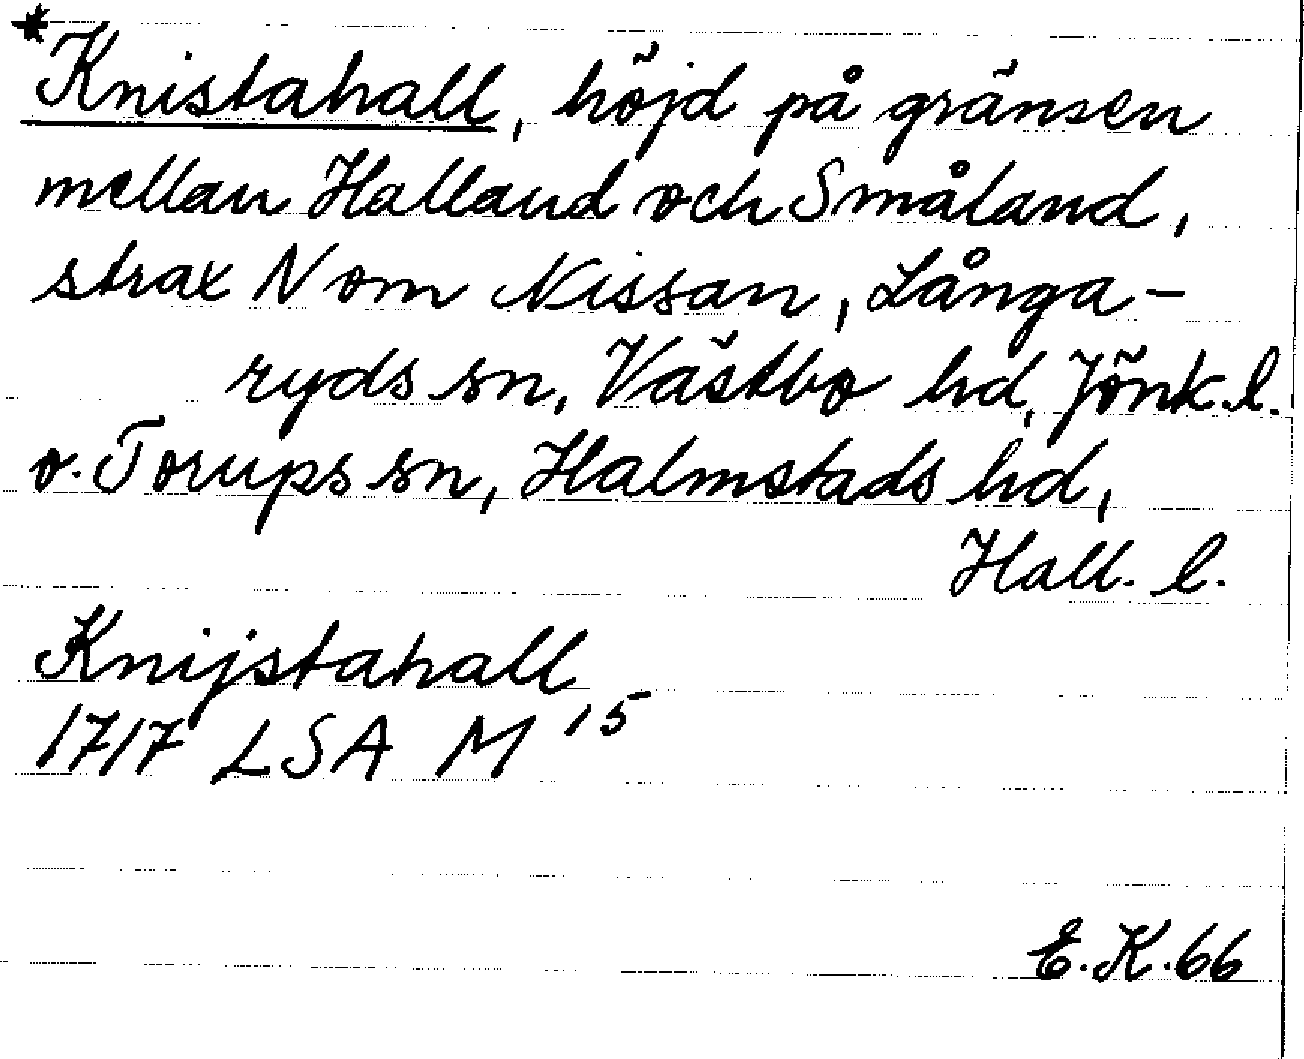 *Knistahall, höjd på gränsen
mellan Halland och Småland,
strax N om Nissan, Långa-
ryds sn, Västbo hd, Jönk. l.
o. Torups sn, Halmstads hd,
Hall. l.
Knijstahall
1717 LSA M 15
E.K. 66